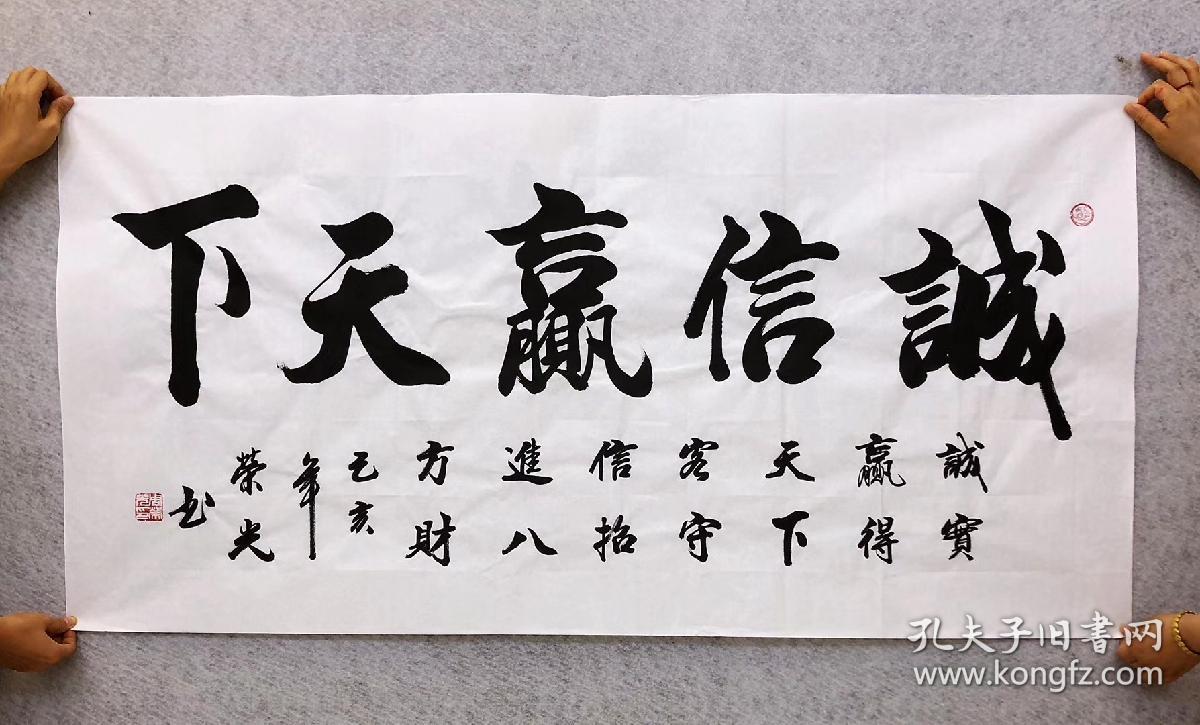 誠信贏天下
誠實
贏得
天下
客守
信招
進八
方財
乙亥
年
榮光
书
孔夫子旧書网
www.kongfz.com